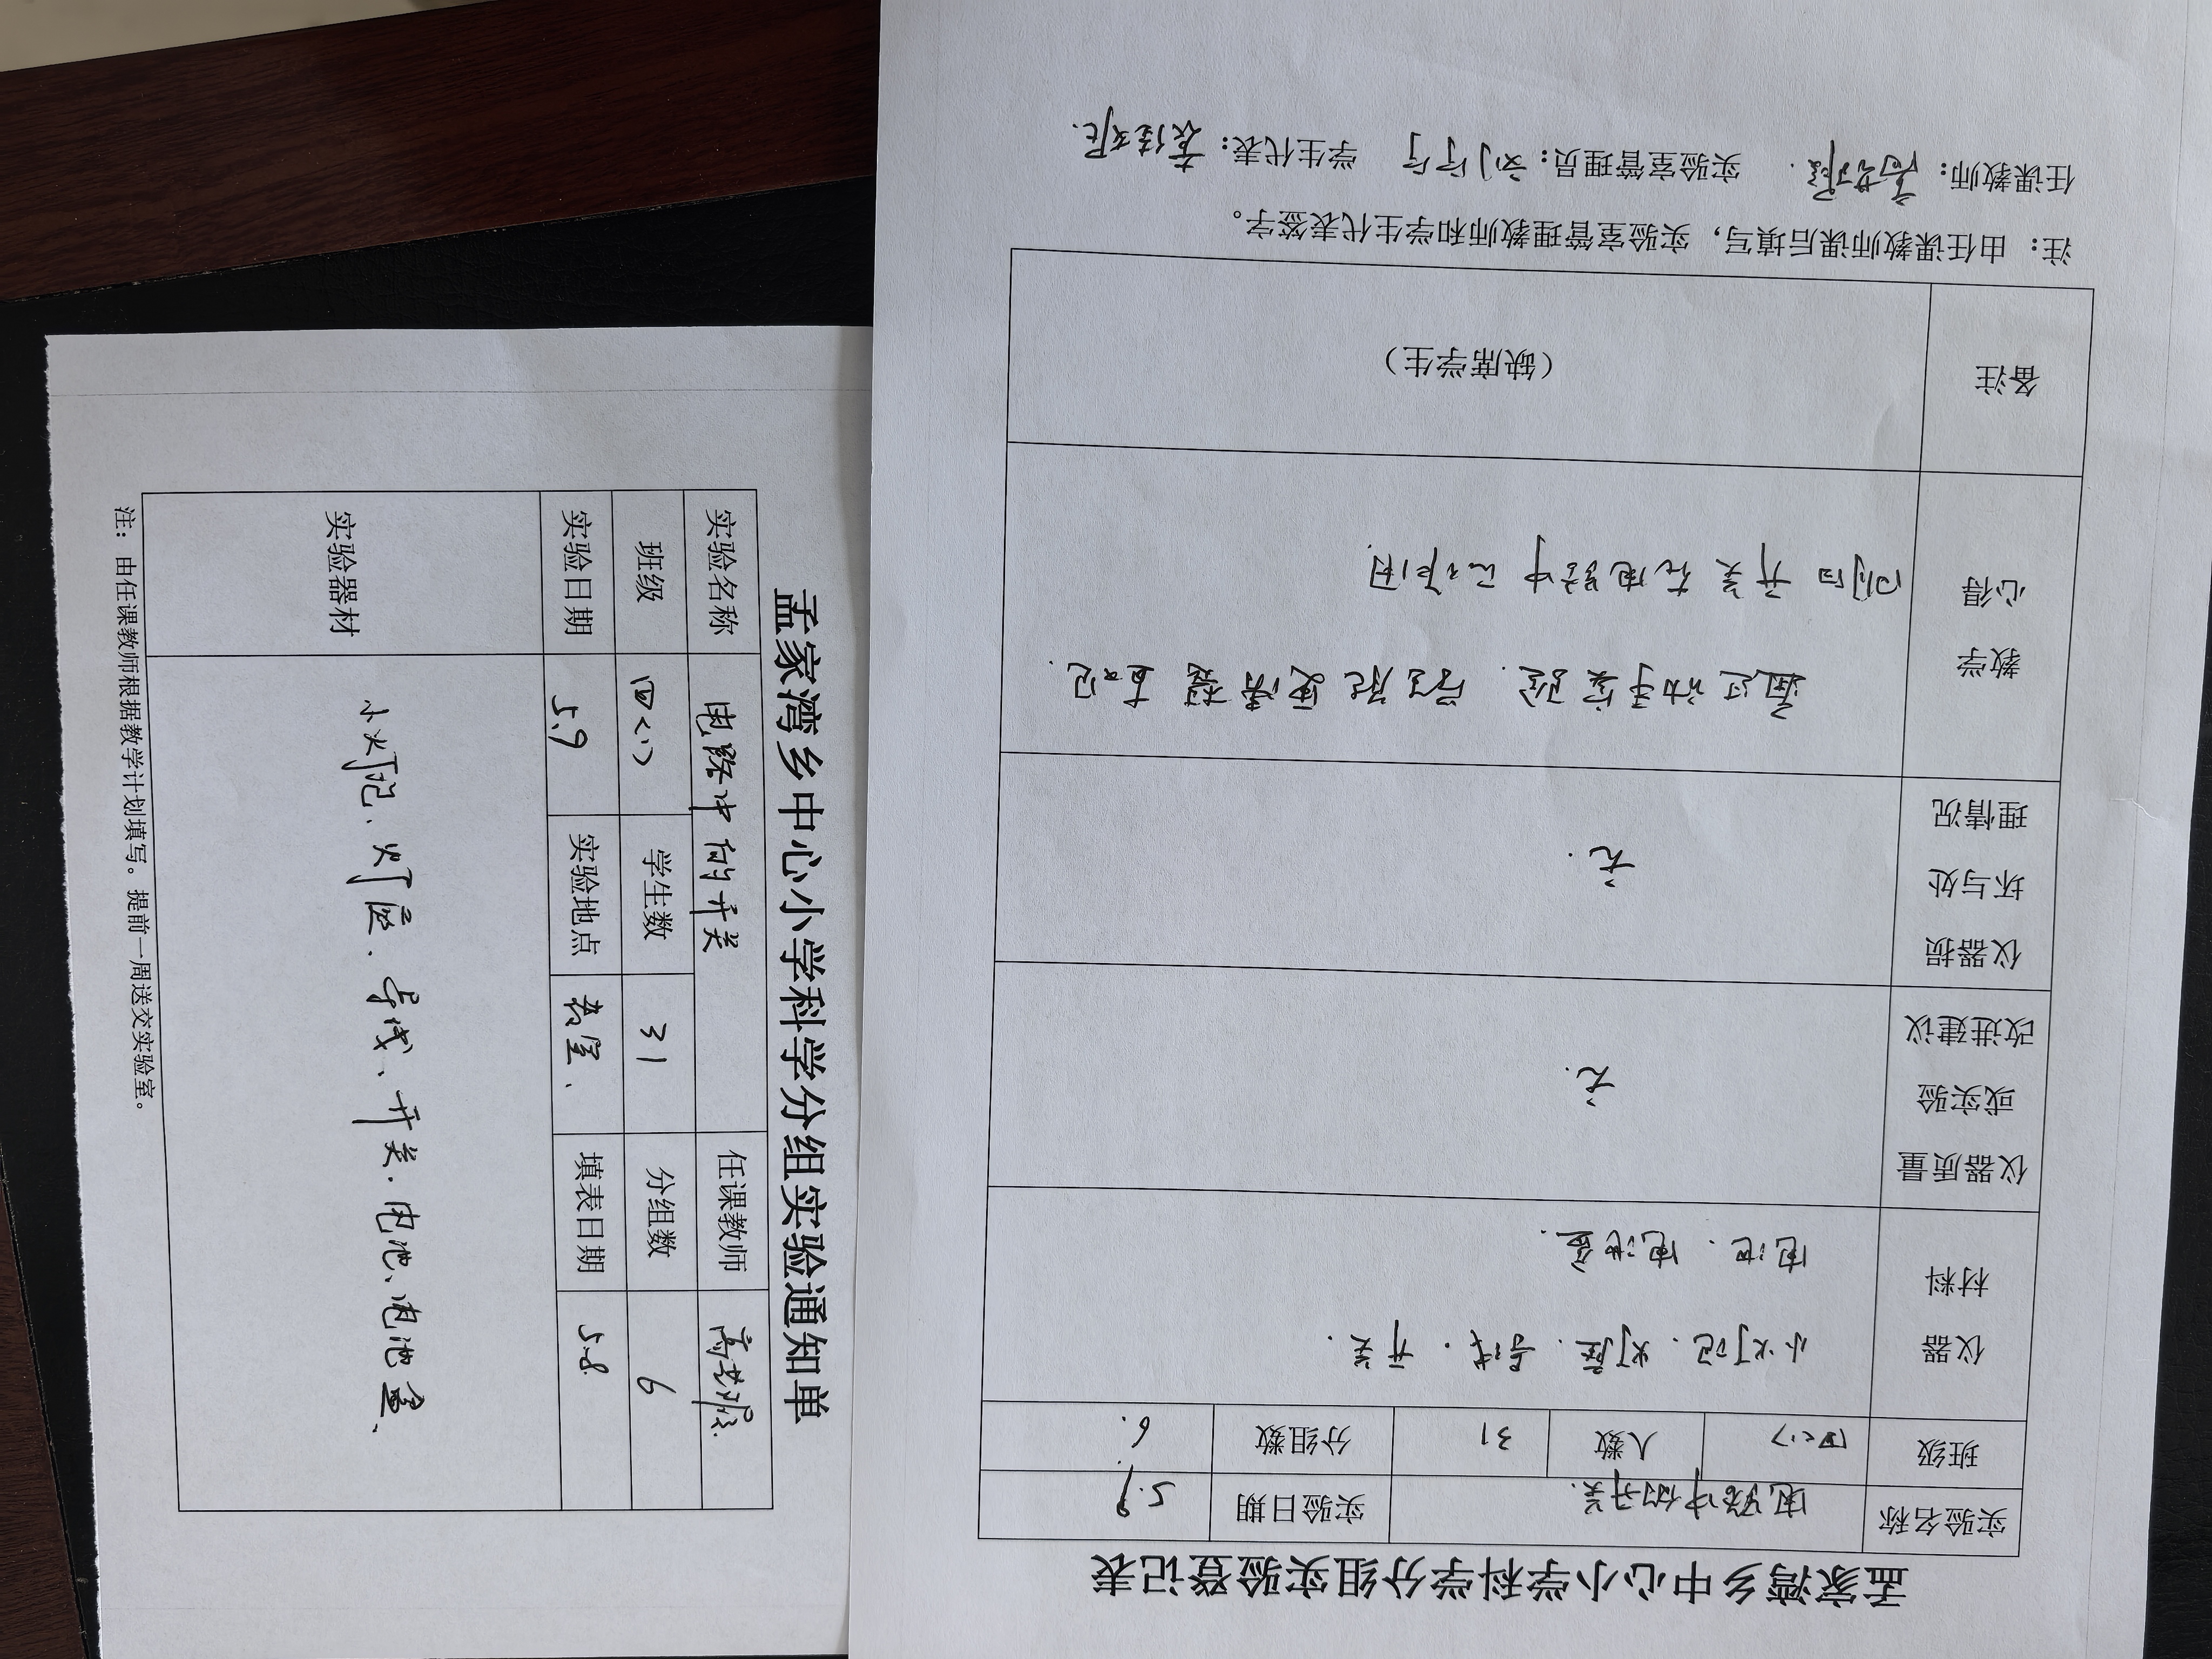 孟家湾乡中心小学科学分组实验通知单
实验名称 电路中的开关 任课教师
班级 四（1） 学生数 31 分组数 6
实验日期 5.9 实验地点 教室、 填表日期 5.8
实验器材 小灯泡、灯座、导线、开关、电池、电池盒、
注：由任课教师根据教学计划填写。提前一周送交实验室。
孟家湾乡中心小学科学分组实验登记表
实验名称 电路中的开关. 实验日期 5.9
班级 四（1） 人数 31 分组数 6.
仪器材料 小灯泡、灯座、导线、开关、
电池、电池盒.
仪器质量或实验改进建议 无.
仪器损坏与处理情况 无.
教学心得 通过动手实验，学生能更清楚直观
明白开关在电路中的作用.
备注 （缺席学生）
注：由任课教师课后填写，实验室管理教师和学生代表签字。
任课教师： 实验室管理员： 学生代表：